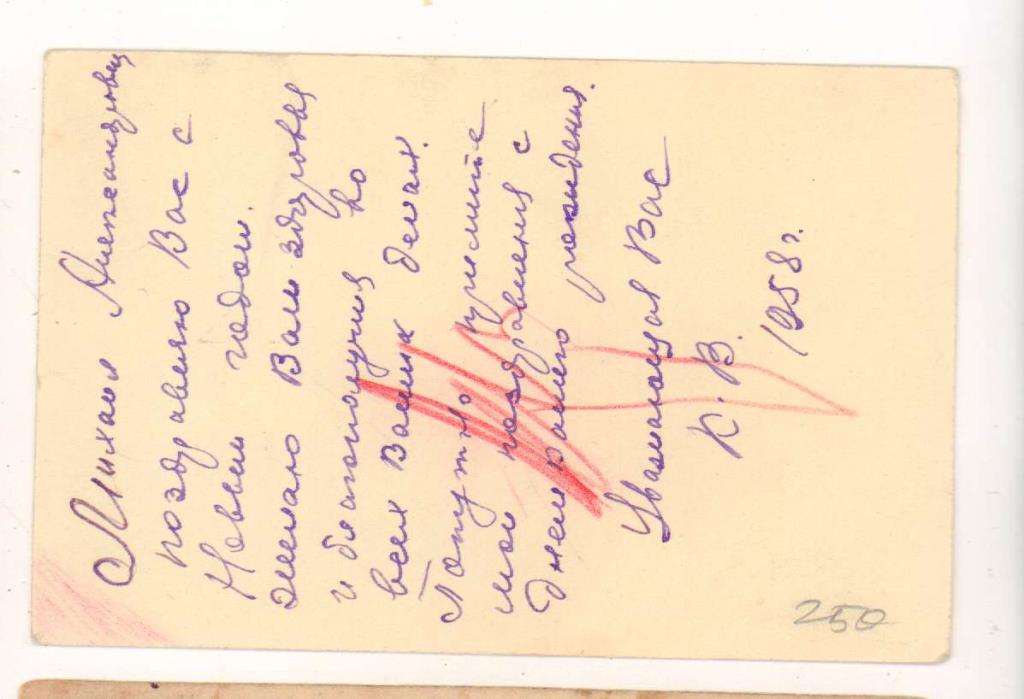 Михаил Александрович
поздравляю Вас с
Новым годом.
Желаю Вам здоровья
и благополучия во
всех Ваших делах.
Попутно примите
мои поздравления с
Днем Вашего рождения.
Уважающая Вас
К. В.
1958 г.
250